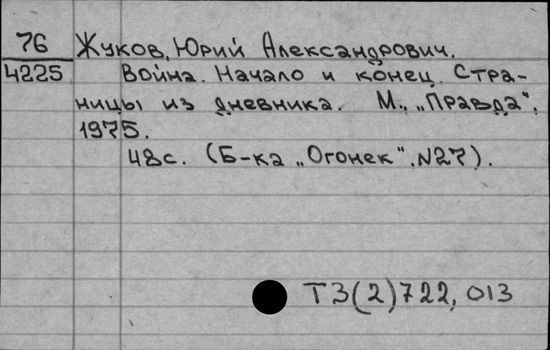 76 Жуков, Юрий Александрович.
4225 Война. Начало и конец. Стра-
ницы из дневника. М., „Правда",
1975.
48с. (Б-ка „Огонек". N27).
Т3(2)722,013